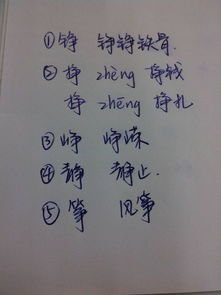 ①铮 铮铮铁骨.
②挣 zhèng 挣钱
挣 zhēng 挣扎
③峥 峥嵘
④静 静止.
⑤筝 风筝